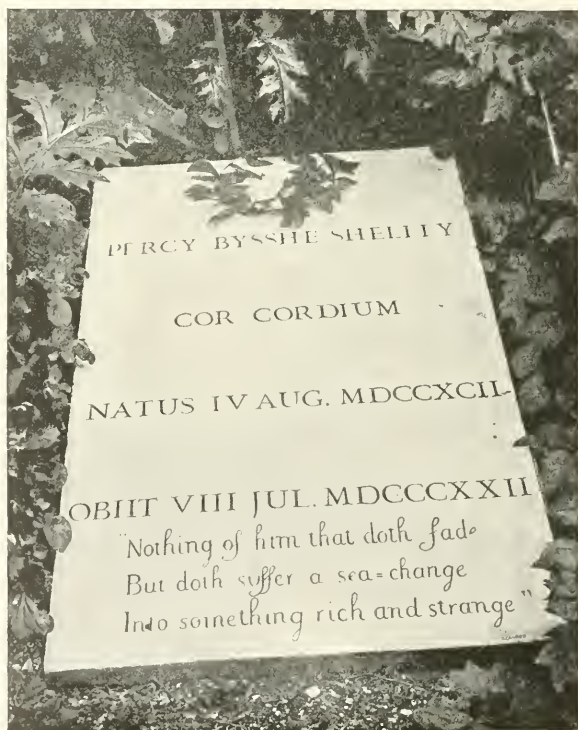 PERCY BYSSHE SHELLEY
COR CORDIUM
NATUS IV AUG. MDCCXCII
OBIIT VIII JUL. MDCCCXXII
"Nothing of him that doth fade
But doth suffer a sea=change
Into something rich and strange"